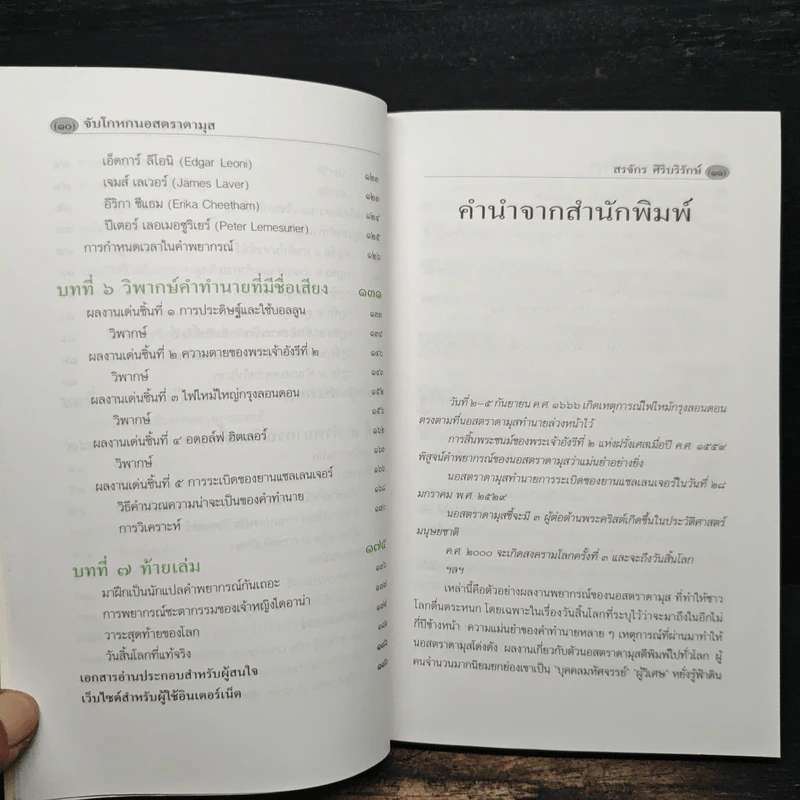 (๑๐) จับโกหกนอสตราดามุส
เอ็ดการ์ ลีโอนิ (Edgar Leoni) ๑๒๓
เจมส์ เลเวอร์ (James Laver) ๑๒๑
อีริกา ชีแธม (Erika Cheetham) ๑๒๔
ปีเตอร์ เลอเมอซูริเยร์ (Peter Lemesurier) ๑๒๕
การกำหนดเวลาในคำพยากรณ์ ๑๒๖
บทที่ ๖ วิพากษ์คำทำนายที่มีชื่อเสียง ๑๓๑
ผลงานเด่นชิ้นที่ ๑ การประดิษฐ์และใช้บอลลูน ๑๓๓
วิพากษ์ ๑๓๔
ผลงานเด่นชิ้นที่ ๒ ความตายของพระเจ้าอังรีที่ ๒
วิพากษ์
ผลงานเด่นชิ้นที่ ๓ ไฟไหม้ใหญ่กรุงลอนดอน
วิพากษ์
ผลงานเด่นชิ้นที่ ๔ อดอล์ฟ ฮิตเลอร์
วิพากษ์
ผลงานเด่นชิ้นที่ ๕ การระเบิดของยานแชลเลนเจอร์
วิธีคำนวณความน่าจะเป็นของคำทำนาย
การวิเคราะห์
บทที่ ๗ ท้ายเล่ม ๑๗๕
มาฝึกเป็นนักแปลคำพยากรณ์กันเถอะ
การพยากรณ์ชะตากรรมของเจ้าหญิงไดอาน่า
วาระสุดท้ายของโลก
วันสิ้นโลกที่แท้จริง
เอกสารอ่านประกอบสำหรับผู้สนใจ
เว็บไซต์สำหรับผู้ใช้อินเตอร์เน็ต
สรจักร ศิริบริรักษ์ (๑๑)
คำนำจากสำนักพิมพ์
วันที่ ๒-๕ กันยายน ค.ศ. ๑๖๖๖ เกิดเหตุการณ์ไฟไหม้กรุงลอนดอน
ตรงตามที่นอสตราดามุสทำนายล่วงหน้าไว้
การสิ้นพระชนม์ของพระเจ้าอังรีที่ ๒ แห่งฝรั่งเศสเมื่อปี ค.ศ. ๑๕๕๙
พิสูจน์คำพยากรณ์ของนอสตราดามุสว่าแม่นยำอย่างยิ่ง
นอสตราดามุสทำนายการระเบิดของยานแชลเลนเจอร์ในวันที่ ๒๘
มกราคม พ.ศ. ๒๕๒๙
นอสตราดามุสชี้จะมี ๓ ผู้ต่อต้านพระคริสต์เกิดขึ้นในประวัติศาสตร์
มนุษยชาติ
ค.ศ. ๒๐๐๐ จะเกิดสงครามโลกครั้งที่ ๓ และจะถึงวันสิ้นโลก
ฯลฯ
เหล่านี้คือตัวอย่างผลงานพยากรณ์ของนอสตราดามุส ที่ทำให้ชาว
โลกตื่นตระหนก โดยเฉพาะในเรื่องวันสิ้นโลกที่ระบุไว้ว่าจะมาถึงในอีกไม่
กี่ปีข้างหน้า ความแม่นยำของคำทำนายหลาย ๆ เหตุการณ์ที่ผ่านมาทำให้
นอสตราดามุสโด่งดัง ผลงานเกี่ยวกับตัวนอสตราดามุสตีพิมพ์ไปทั่วโลก ผู้
คนจำนวนมากนิยมยกย่องเขาเป็น "บุคคลมหัศจรรย์" "ผู้วิเศษ" หยั่งรู้ฟ้าดิน